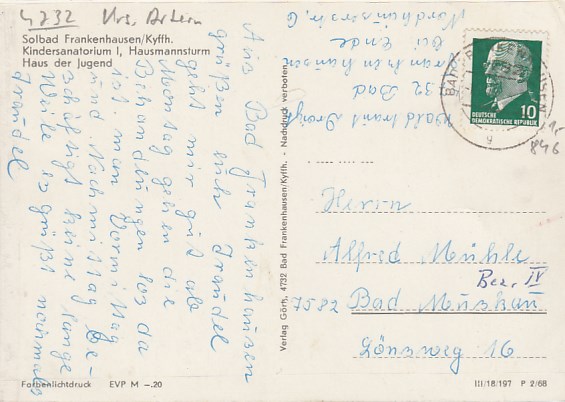 4732 Krs. Artern
Solbad Frankenhausen/Kyffh.
Kindersanatorium I, Hausmannsturm
Haus der Jugend
Aus Bad Frankenhausen
grüßen dich Traudel
geht mir gut ab
Montag gehen die
Behandlungen los da
hat man Vormittag
und Nachmittag be-
schäftigt keine lange
Weile es grüßt nochmals
Traudel
Farbenlichtdruck EVP M –.20
Verlag Görth, 4732 Bad Frankenhausen/Kyffh. - Nachdruck verboten.
Waldtraut
32 Bad
Frankenhausen
bei Ende
Nordhäuserstr. 6
BAD FRANKENHAUSEN
g
10
DEUTSCHE
DEMOKRATISCHE REPUBLIK
1,-
846
Herrn
Alfred Mühle
Bez. IV
7582 Bad Muskau
Gönzweg 16
III/18/197 P 2/68